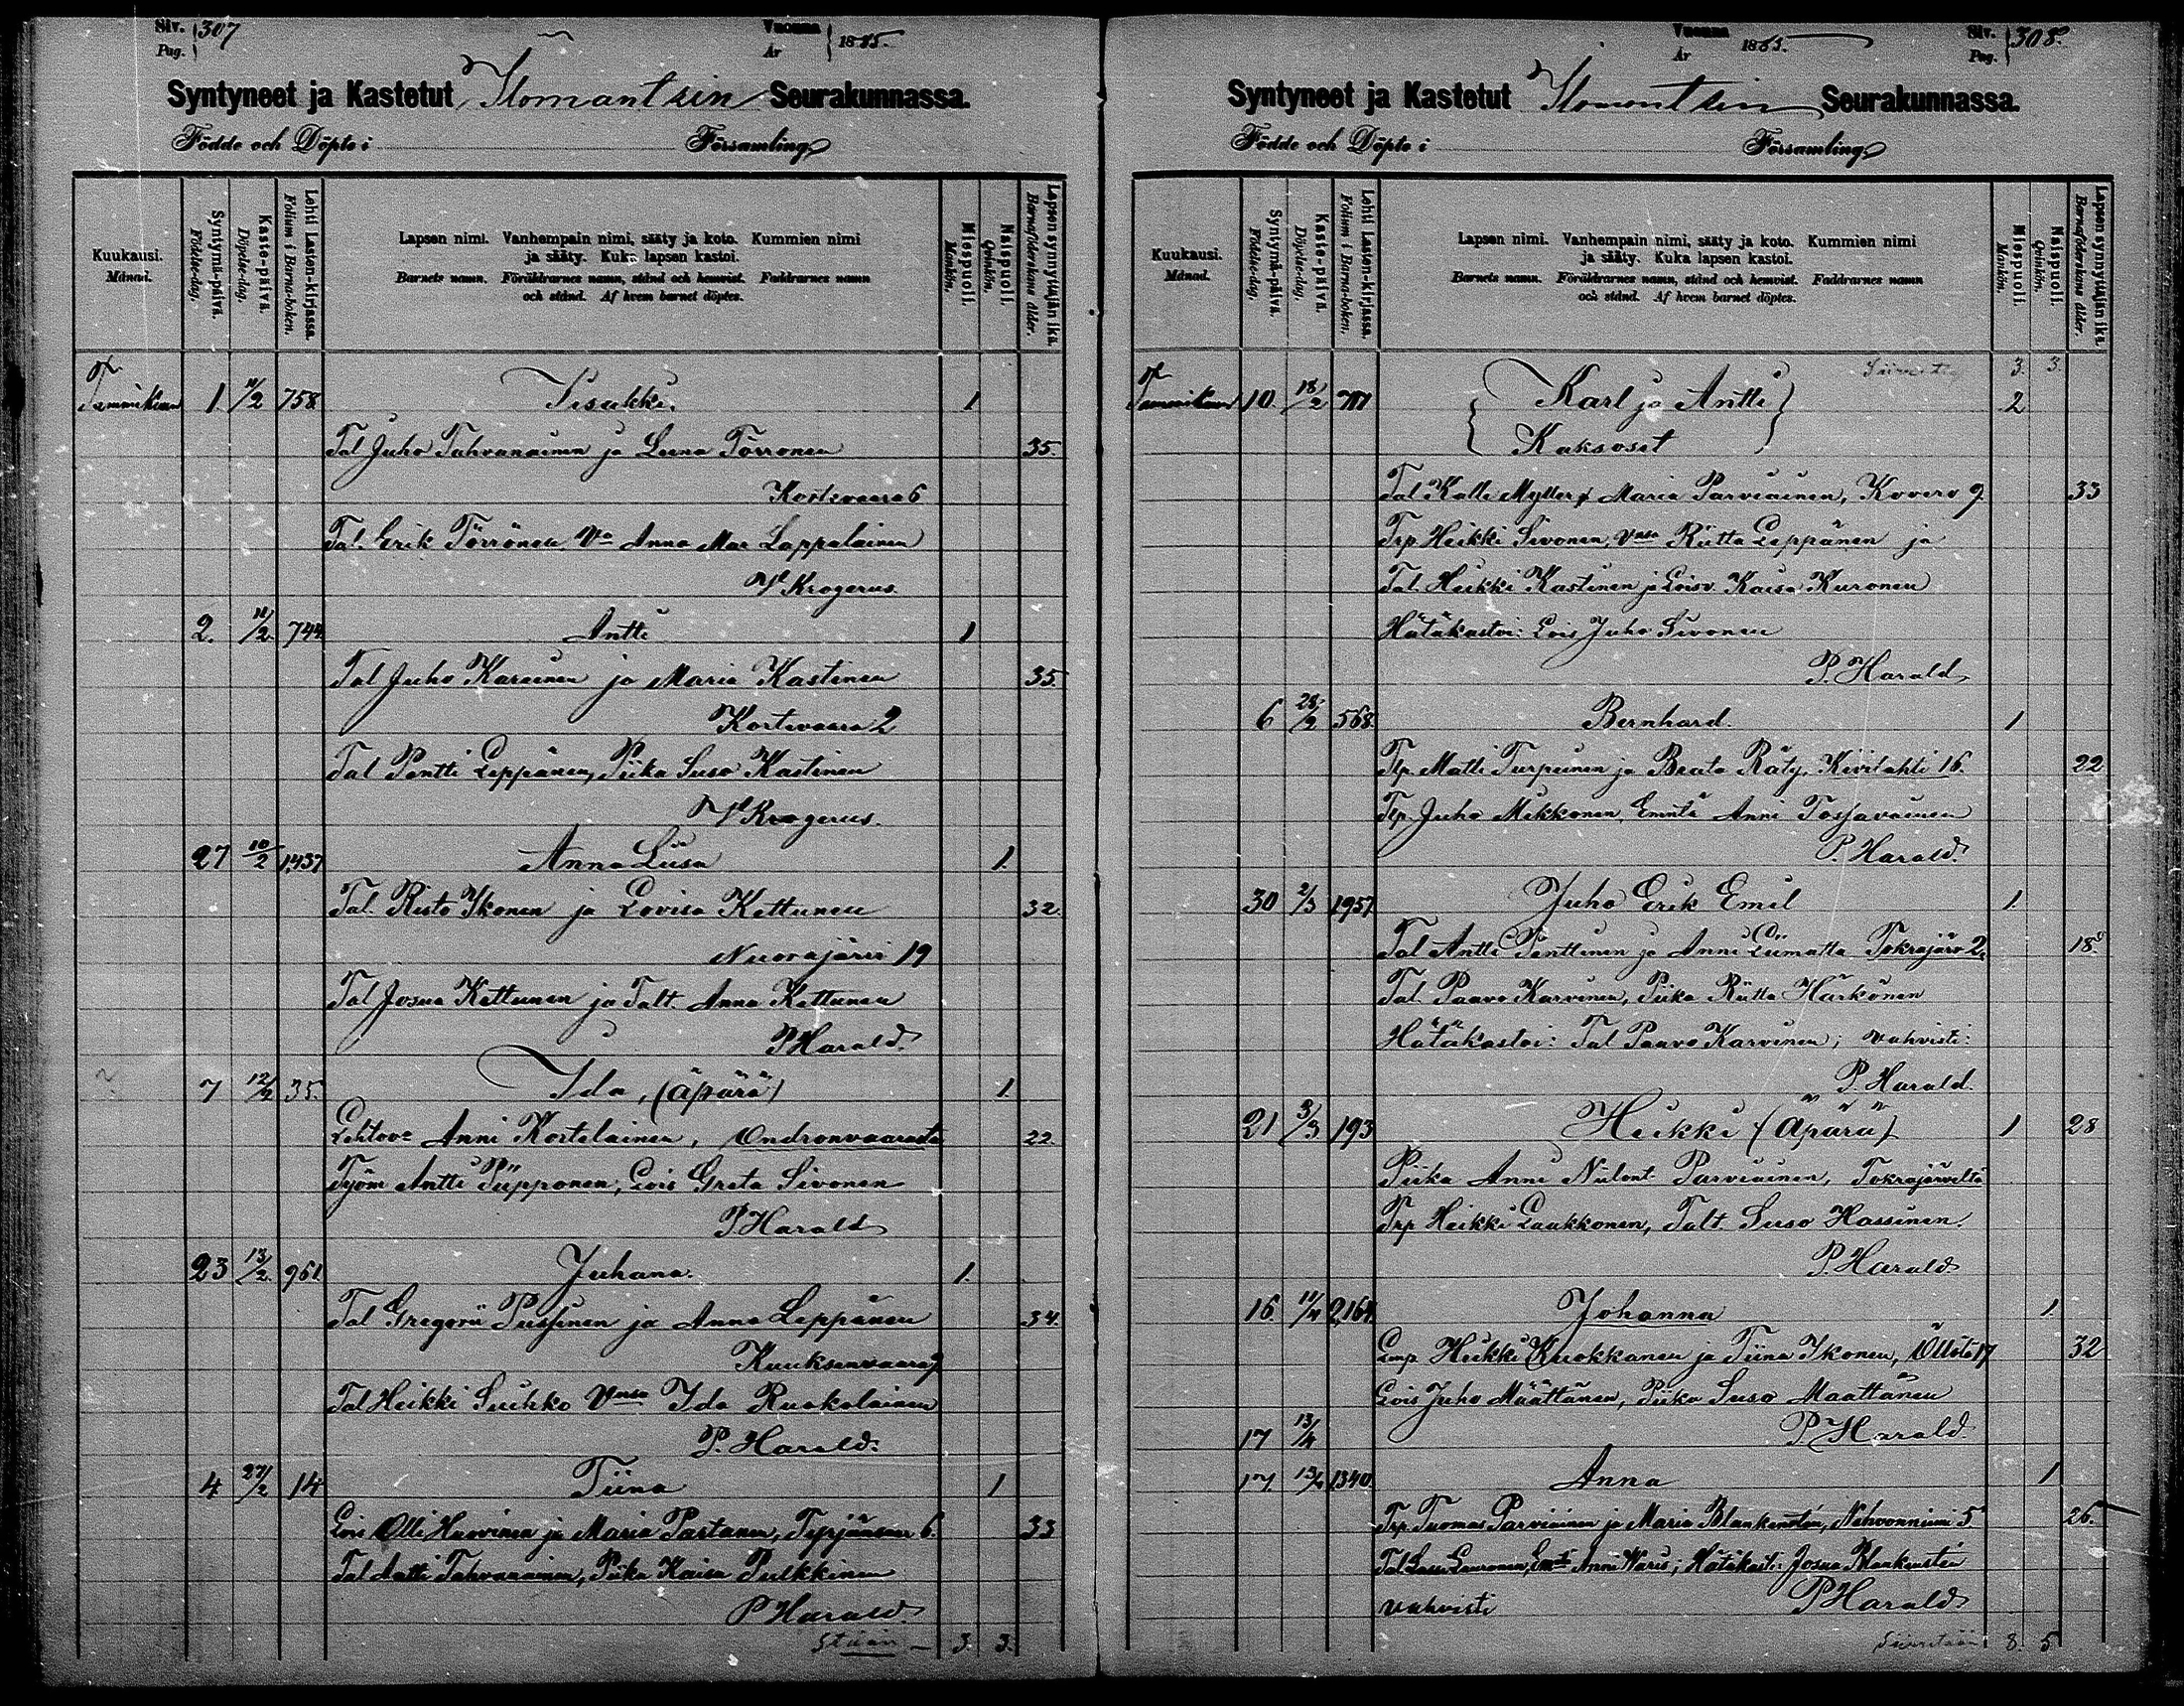 Siv. Pag. 307
Vuonna År 1885.
Syntyneet ja Kastetut Ilomantsin Seurakunnassa.
Födde och Döpte i Församling
Kuukausi. Månad.
Syntymä-päivä. Födelse-dag.
Kaste-päivä. Döpelse-dag.
Lehti Lasten-kirjassa. Folium i Barna-boken.
Lapsen nimi. Vanhempain nimi, sääty ja koto. Kummien nimi
ja sääty. Kuka lapsen kastoi.
Barnets namn. Föräldrarnes namn, stånd och hemvist. Faddrarnes namn
och stånd. Af hvem barnet döptes.
Miespuoli. Mankön.
Naispuoli. Qvinkön.
Lapsen synnyttäjän ikä. Barnaföderskans ålder.
Tammikuu 1. 11/2 758 Iisakki. 1
Tal Juho Tahvanainen ja Leena Törrönen 35.
Kostivaara 6
Tal. Erik Törrönen, Vo Anna Mar Lappalainen
W Krogerus.
2. 11/2. 744 Antti 1
Tal Juho Karvinen ja Maria Kastinen 35.
Kortevaara 2
Tal Pentti Leppänen, Piika Suso Kastinen
W Krogerus.
27 10/2 1437 Anna Liisa 1.
Tal. Risto Ikonen ja Lovisa Kettunen 32.
Nuorajärvi 19
Tal Josua Kettunen ja Talt. Anna Kettunen
P Harald.
7 12/2 35. Ida, (äpärä) 1.
Anni Kortelainen, Ondronvaarasta 22.
Työm Antti Piipponen, Lois Greta Sivonen
P Harald
23 13/2. 961 Juhana. 1.
Tal Gregorii Pussinen ja Anna Leppänen 34.
Kuuksenvaara 7
Tal Heikki Suihko Vmo Ida Ruokolainen
P. Harald.
4 27/2 14 Tiina 1
Lois Olli Huovinen ja Maria Partanen, 6. 33
Tal Antti Tahvanainen, Piika Kaisa Pulkkinen
P Harald.
3. 3.
Vuonna År 1885.
Siv. Pag. 308.
Syntyneet ja Kastetut Ilomantsin Seurakunnassa.
Födde och Döpte i Församling
Kuukausi. Månad.
Syntymä-päivä. Födelse-dag.
Kaste-päivä. Döpelse-dag.
Lehti Lasten-kirjassa. Folium i Barna-boken.
Lapsen nimi. Vanhempain nimi, sääty ja koto. Kummien nimi
ja sääty. Kuka lapsen kastoi.
Barnets namn. Föräldrarnes namn, stånd och hemvist. Faddrarnes namn
och stånd. Af hvem barnet döptes.
Miespuoli. Mankön.
Naispuoli. Qvinkön.
Lapsen synnyttäjän ikä. Barnaföderskans ålder.
3. 3.
Tammikuu 10 18/2 Karl ja Antti 2
Kaksoset
Tal. Kalle Myller ja Maria Parviainen, Kovero 9. 33
Trp Heikki Sivonen, Vmo Riitta Leppänen ja
Tal. Heikki Kastinen ja Loisv. Kaisa Kuronen
Hätäkastoi: Lois Juho Sivonen
P. Harald
6 28/2 568. Bernhard. 1
Trp. Matti Turpeinen ja Beata Räty, Kivilahti 16. 22
Trp. Juho Mikkonen, Emäntä Anni Tossavainen
P. Harald.
30 2/3 1957 Juho Erik Emil 1.
Tal Antti Penttinen ja Anni Liimatta Tokrajärv 2. 18.
Tal. Paavo Karvinen, Piika Riitta Härkönen
Hätäkastoi: Tal Paavo Karvinen; vahvisti:
P. Harald.
21 3/3 193 Heikki (Äpärä) 1 28
Piika Anni Niilont. Parviainen, Tokrajärveltä
Trp Heikki Laukkonen, Talt Suso Hassinen.
P. Harald
16. 11/4 2,164. Johanna 1.
Lmp Heikki Kuokkanen ja Tiina Ikonen, Öllölä 17 32
Lois Juho Määttänen, Piika Suso Maattänen
17 13/4 P. Harald.
17. 13/4 1340 Anna 1
Trp Tuomas Parviainen ja Maria Blankenstén, Nehvonniemi 5. 26.
Tal. Lasse Louronen, Emt Anni Waris; Hätäkasti: Josua Blankenstén
vahvisti P Harald
Siirretään 8. 5